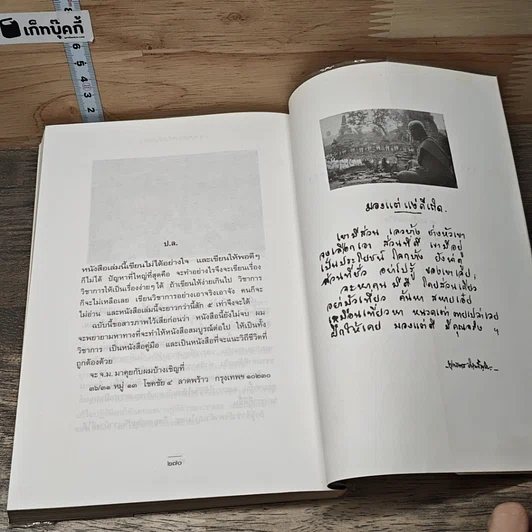 เก็ทบุ๊คกี้
6 5 4 3 2
ป.ล.
หนังสือเล่มนี้เขียนไม่ได้อย่างใจ และเขียนให้พอดีๆ
ก็ไม่ได้ ปัญหาที่ใหญ่ที่สุดคือ จะทำอย่างไรจึงจะเขียนเรื่อง
วิชาการให้เป็นเรื่องง่ายๆ ได้ ถ้าเขียนให้ง่ายเกินไป วิชาการ
ก็จะไม่เหลือเลย เขียนวิชาการอย่างเอาจริงเอาจัง คนก็จะ
ไม่อ่าน และหนังสือเล่มนี้จะยาวกว่านี้สัก ๕ เท่าจึงจะได้
ฉบับนี้ขอสารภาพไว้เสียก่อนว่า หนังสือนี้ยังไม่จบ ผม
จะพยายามหาทางที่จะทำให้หนังสือสมบูรณ์ต่อไป ให้เป็นทั้ง
วิชาการ เป็นหนังสือคู่มือ และเป็นหนังสือที่จะแนะวิถีชีวิตที่
ถูกต้องด้วย
จะ จ.ม. มาคุยกับผมบ้างเชิญที่
๓๖/๓๑ หมู่ ๑๓ โชคชัย ๔ ลาดพร้าว กรุงเทพฯ ๑๐๒๓๐
๒๗๐
มองแต่แง่ดีเถิด
เขามีส่วน เลวบ้าง ช่างหัวเขา
จงเลือกเอา ส่วนที่ดี เขามีอยู่
เป็นประโยชน์ โลกบ้าง ยังน่าดู
ส่วนที่ชั่ว อย่าไปรู้ ของเขาเลย,
จะหาคน มีดี โดยส่วนเดียว
อย่ามัวเที่ยว ค้นหา สหายเอ๋ย
เหมือนเที่ยวหา หนวดเต่า ตายเปล่าเอย
ฝึกให้เคย มองแต่ดี มีคุณจริง ฯ